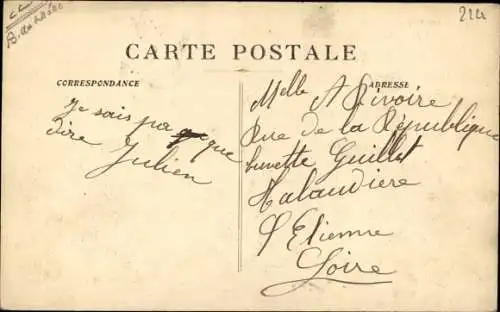 2121
CARTE POSTALE
CORRESPONDANCE
Je sais pa que
dire Julien
ADRESSE
Melle A Rivoire
Rue de la République
buvette Guillet
Malaudiere
St Etienne
Loire